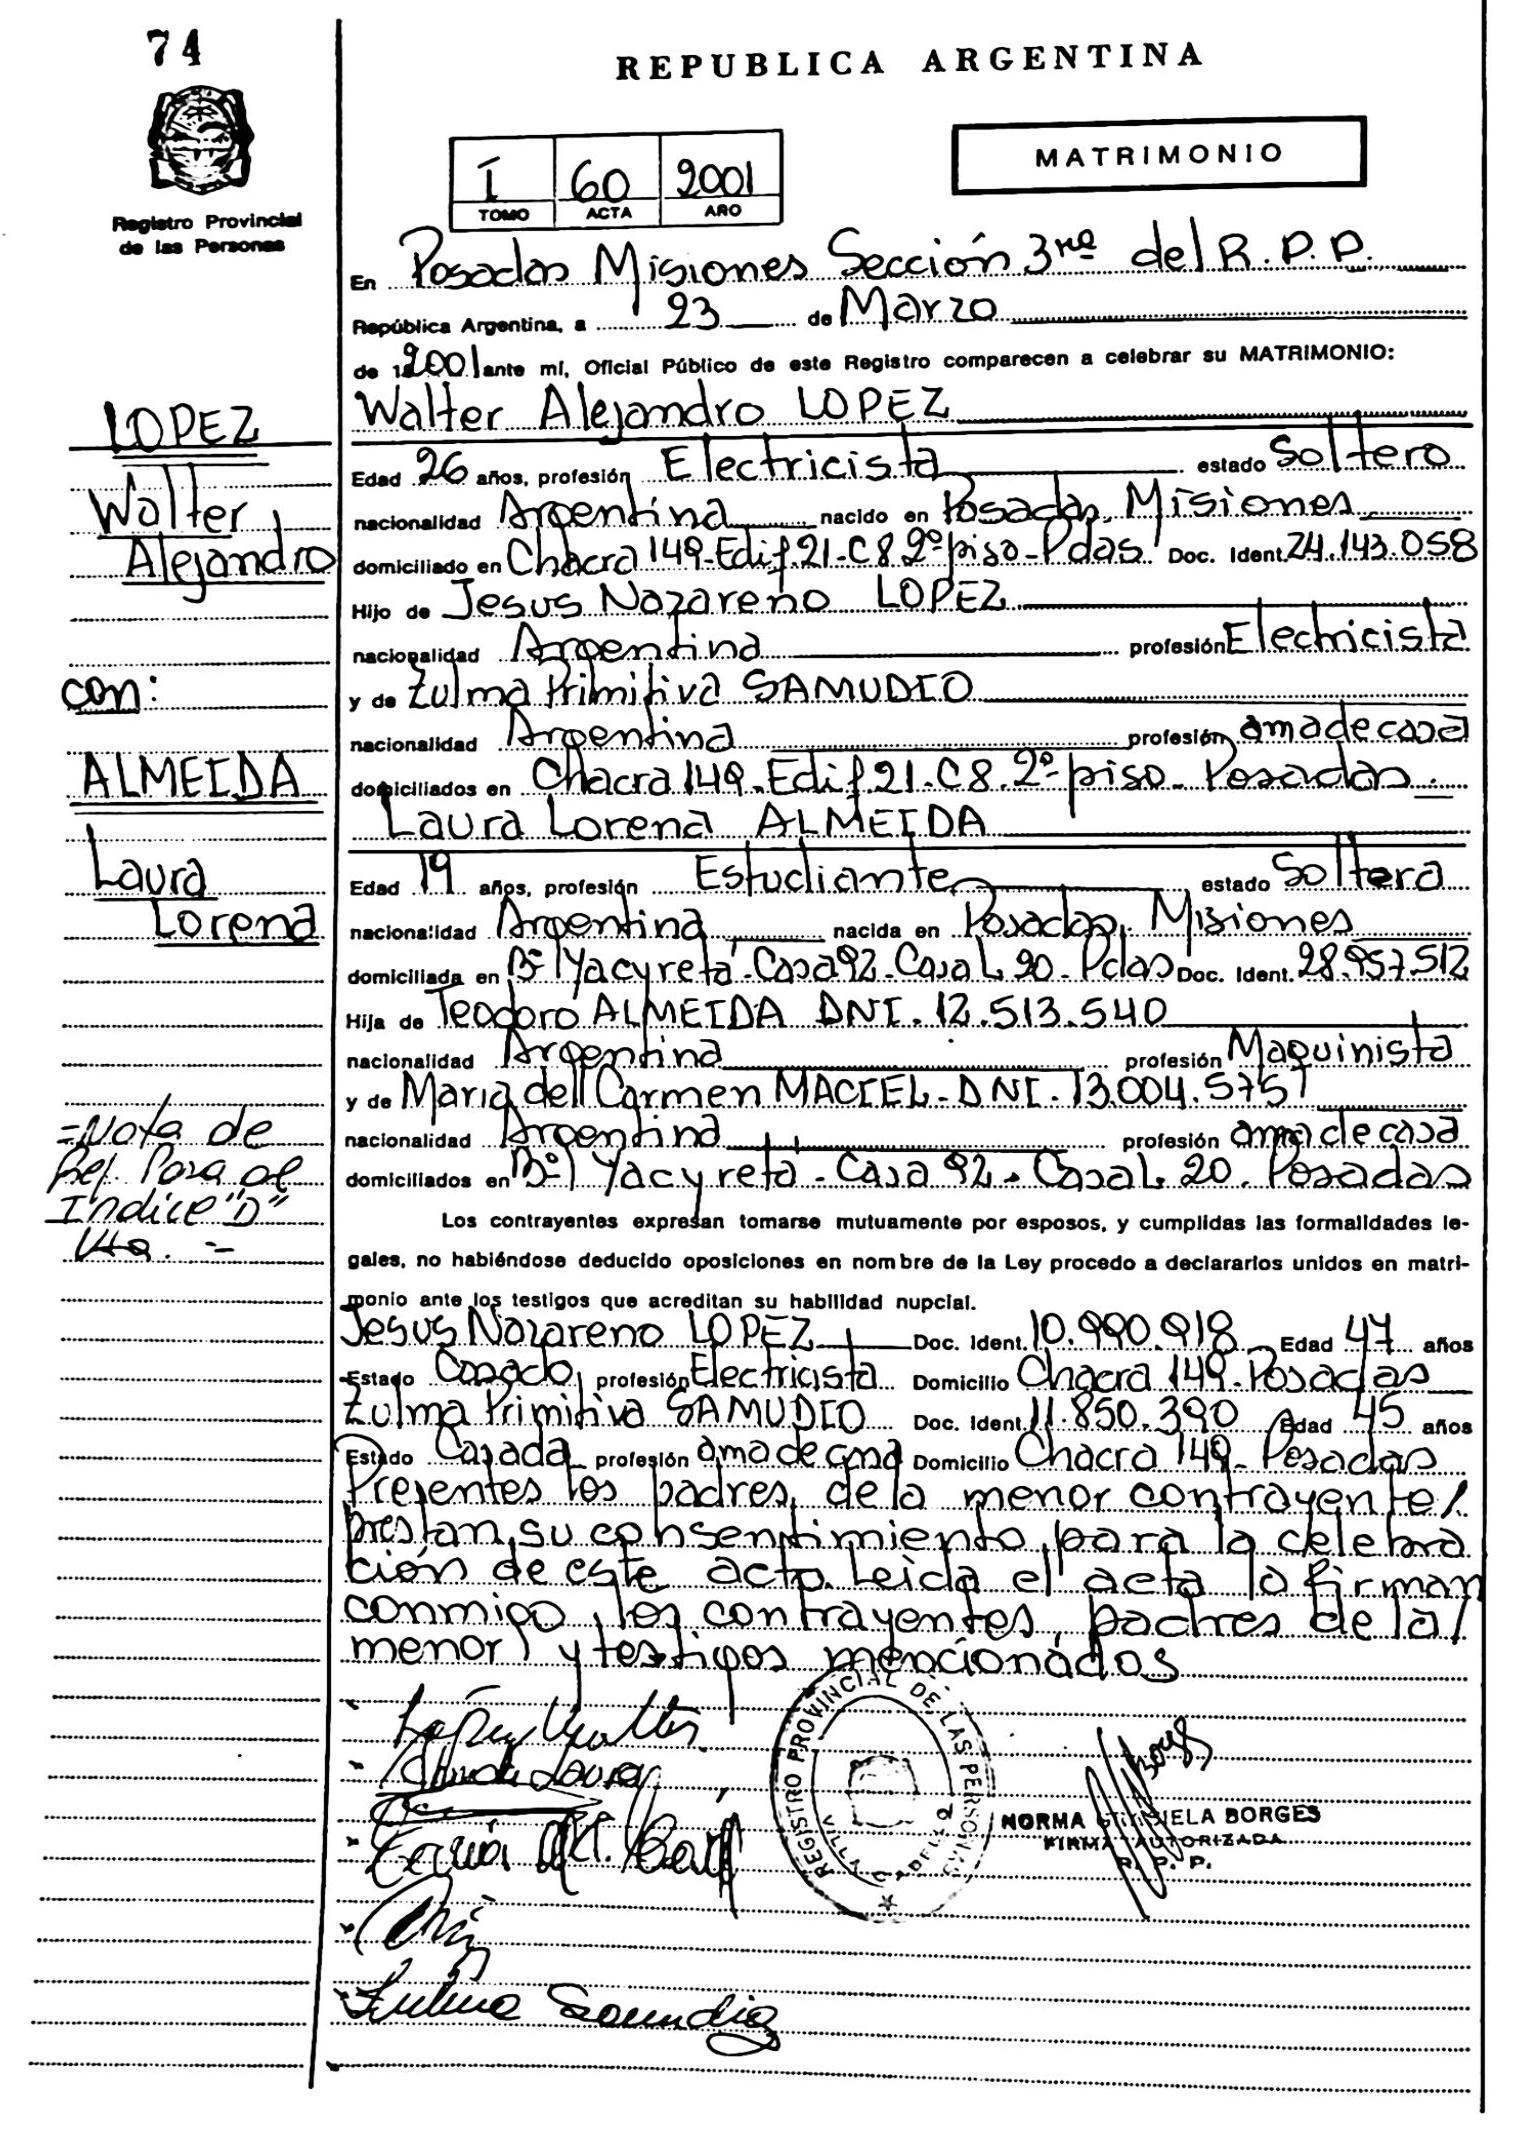 74
REPUBLICA ARGENTINA
Registro Provincial
de las Personas
I 60 2001
TOMO ACTA AÑO
MATRIMONIO
En Posadas Misiones Sección 3ra del R.P.P.
República Argentina, a 23 de Marzo
de 2001 ante mí, Oficial Público de este Registro comparecen a celebrar su MATRIMONIO:
Walter Alejandro LOPEZ
LOPEZ
Walter
Alejandro
Edad 26 años, profesión Electricista estado Soltero
nacionalidad Argentina nacido en Posadas, Misiones
domiciliado en Chacra 149-Edif.21-C8 2º piso-Pdas. Doc. Ident. 24.143.058
Hijo de Jesus Nazareno LOPEZ
nacionalidad Argentina profesión Electricista
con:
y de Zulma Primitiva SAMUDIO
nacionalidad Argentina profesión ama de casa
ALMEIDA
domiciliados en Chacra 149-Edif 21-C8.2º piso-Posadas-
Laura Lorena ALMEIDA
Laura
Lorena
Edad 19 años, profesión Estudiante estado Soltera
nacionalidad Argentina nacida en Posadas, Misiones
domiciliada en Bº Yacyreta-Casa92-Casa L.20-Pdas Doc. Ident. 28.957.512
Hija de Teodoro ALMEIDA DNI. 12.513.540
nacionalidad Argentina profesión Maquinista
y de Maria del Carmen MACIEL-DNI.13.004.575
nacionalidad Argentina profesión ama de casa
domiciliados en Bº Yacyreta-Casa 92-Casa L.20-Posadas
=Nota de
Ref. Pasa al
Indice "D"
Vta. =
Los contrayentes expresan tomarse mutuamente por esposos, y cumplidas las formalidades le-
gales, no habiéndose deducido oposiciones en nombre de la Ley procedo a declararlos unidos en matri-
monio ante los testigos que acreditan su habilidad nupcial.
Jesus Nazareno LOPEZ Doc. Ident. 10.990.918 Edad 47 años
Estado Casado profesión Electricista Domicilio Chacra 149-Posadas
Zulma Primitiva SAMUDIO Doc. Ident. 11.850.390 Edad 45 años
Estado Casada profesión ama de casa Domicilio Chacra 149-Posadas
Presentes los padres de la menor contrayente/
prestan su consentimiento para la celebra
ción de este acto. Leida el acta lo firman
conmigo, los contrayentes, padres de la/
menor y testigos mencionados
Lopez Walter
Almeida Laura
REGISTRO PROVINCIAL DE LAS PERSONAS
VILLA CABELLO
NORMA GRACIELA BORGES
FIRMA AUTORIZADA
R. P. P.
Zulma Samudio